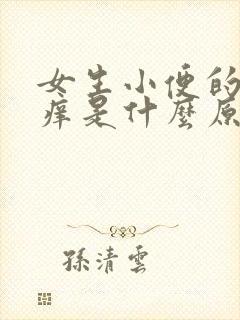 女生小便的
痒是什麼原
孫清雲